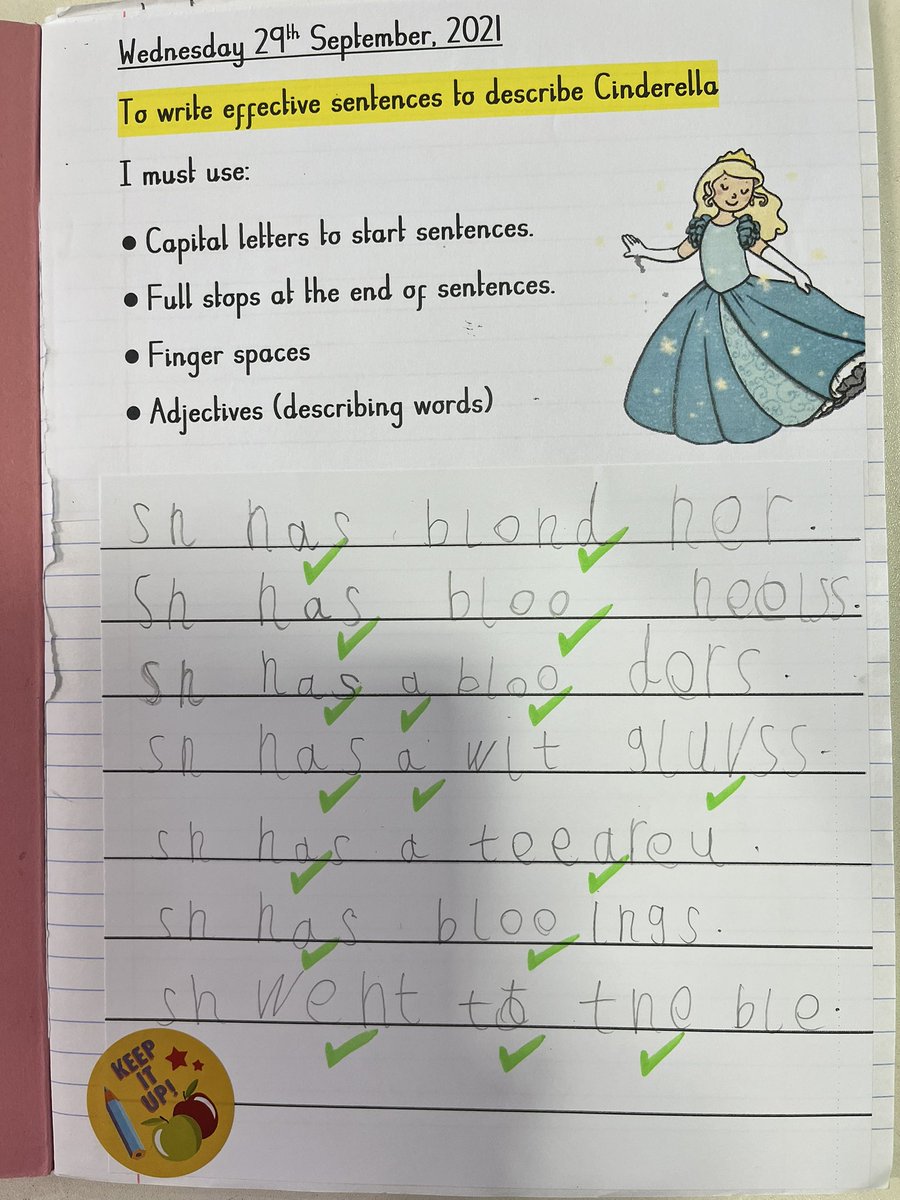 Wednesday 29th September, 2021
To write effective sentences to describe Cinderella
I must use:
• Capital letters to start sentences.
• Full stops at the end of sentences.
• Finger spaces
• Adjectives (describing words)
sh has blond her.
Sh has bloo heelss.
sh has a bloo dors.
sh has a wit gluvss.
sh has a teeareu.
sh has bloo ings.
sh went to the ble.
KEEP
IT
UP!